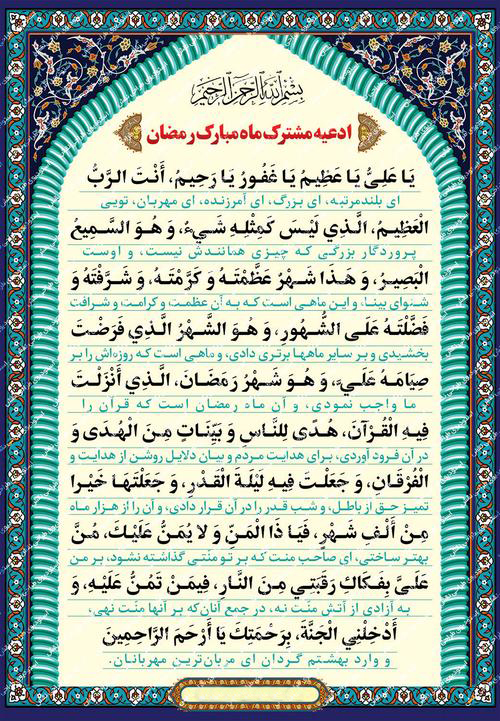 بِسْمِ اللَّهِ الرَّحْمَنِ الرَّحِيمِ
ادعیه مشترک ماه مبارک رمضان
يَا عَلِيُّ يَا عَظِيمُ يَا غَفُورُ يَا رَحِيمُ، أَنْتَ الرَّبُّ
ای بلندمرتبه، ای بزرگ، ای آمرزنده، ای مهربان، تویی
الْعَظِيمُ، الَّذِي لَيْسَ كَمِثْلِهِ شَيْءٌ، وَ هُوَ السَّمِيعُ
پروردگار بزرگی که چیزی همانندش نیست، و اوست
الْبَصِيرُ، وَ هَذَا شَهْرٌ عَظَّمْتَهُ وَ كَرَّمْتَهُ، وَ شَرَّفْتَهُ وَ
شنوای بینا، و این ماهی است که به آن عظمت و کرامت و شرافت
فَضَّلْتَهُ عَلَى الشُّهُورِ، وَ هُوَ الشَّهْرُ الَّذِي فَرَضْتَ
بخشیدی و بر سایر ماهها برتری دادی، و ماهی است که روزه‌اش را بر
صِيَامَهُ عَلَيَّ، وَ هُوَ شَهْرُ رَمَضَانَ، الَّذِي أَنْزَلْتَ
ما واجب نمودی، و آن ماه رمضان است که قرآن را
فِيهِ الْقُرْآنَ، هُدًى لِلنَّاسِ وَ بَيِّنَاتٍ مِنَ الْهُدَى وَ
در آن فرود آوردی، برای هدایت مردم و بیان دلایل روشن از هدایت و
الْفُرْقَانِ، وَ جَعَلْتَ فِيهِ لَيْلَةَ الْقَدْرِ، وَ جَعَلْتَهَا خَيْرا
تمیز حق از باطل، و شب قدر را در آن قرار دادی، و آن را از هزار ماه
مِنْ أَلْفِ شَهْرٍ، فَيَا ذَا الْمَنِّ وَ لا يُمَنُّ عَلَيْكَ، مُنَّ
بهتر ساختی، ای صاحب منت که بر تو منّتی گذاشته نشود، بر من
عَلَيَّ بِفَكَاكِ رَقَبَتِي مِنَ النَّارِ، فِيمَنْ تَمُنُّ عَلَيْهِ، وَ
به آزادی از آتش منّت نه، در جمع آنان‌که بر آنها منّت نهی،
أَدْخِلْنِي الْجَنَّةَ، بِرَحْمَتِكَ يَا أَرْحَمَ الرَّاحِمِينَ
و وارد بهشتم گردان ای مهربان‌ترین مهربانان.